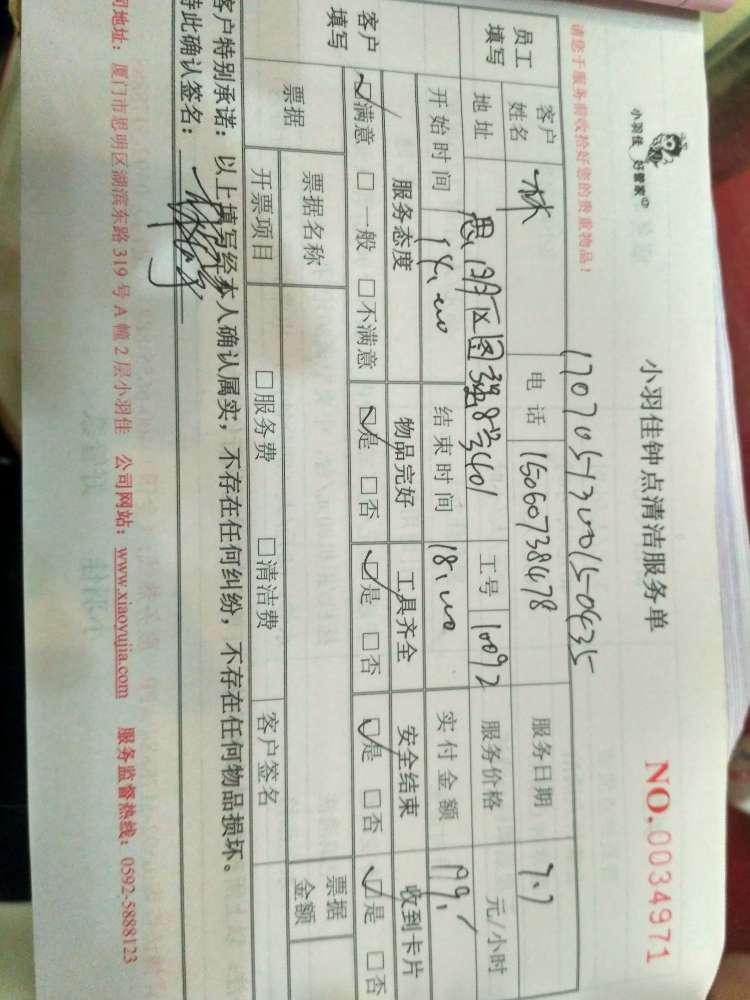 小羽佳 好管家
小羽佳钟点清洁服务单
NO.0034971
请您于服务前收拾好您的贵重物品！
170705132015-0435
员工填写
客户姓名 林 电话 15060738478 服务日期 7.7
地址 思明区图强8号401 工号 10092 服务价格 元/小时
开始时间 14:00 结束时间 18:00 实付金额
客户填写
服务态度 物品完好 工具齐全 安全结束 收到卡片
☑满意 □一般 □不满意 ☑是 □否 ☑是 □否 ☑是 □否 ☑是 □否
票据 票据名称 票据金额
开票项目 □服务费 □清洁费 客户签名
客户特别承诺：以上填写经本人确认属实，不存在任何纠纷，不存在任何物品损坏。
特此确认签名：
司地址：厦门市思明区湖滨东路319号A幢2层小羽佳 公司网站：www.xiaoyujia.com 服务监督热线：0592-5888123